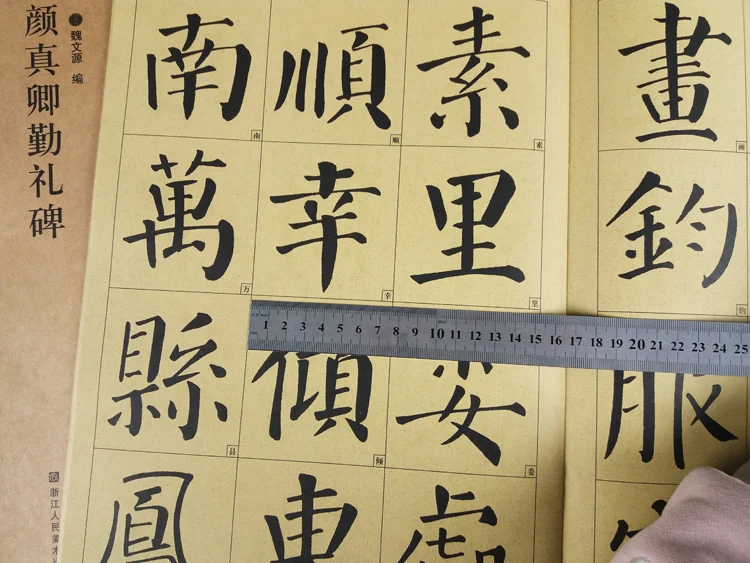 颜真卿勤礼碑
魏文源 编
浙江人民美术
南 順 素 畫
南 顺 素 画
萬 幸 里 鈞
万 幸 里 钧
1 2 3 4 5 6 7 8 9 10 11 12 13 14 15 16 17 18 19 20 21 22 23 24 25
縣 傾 委 服
县 倾 委
鳳 東